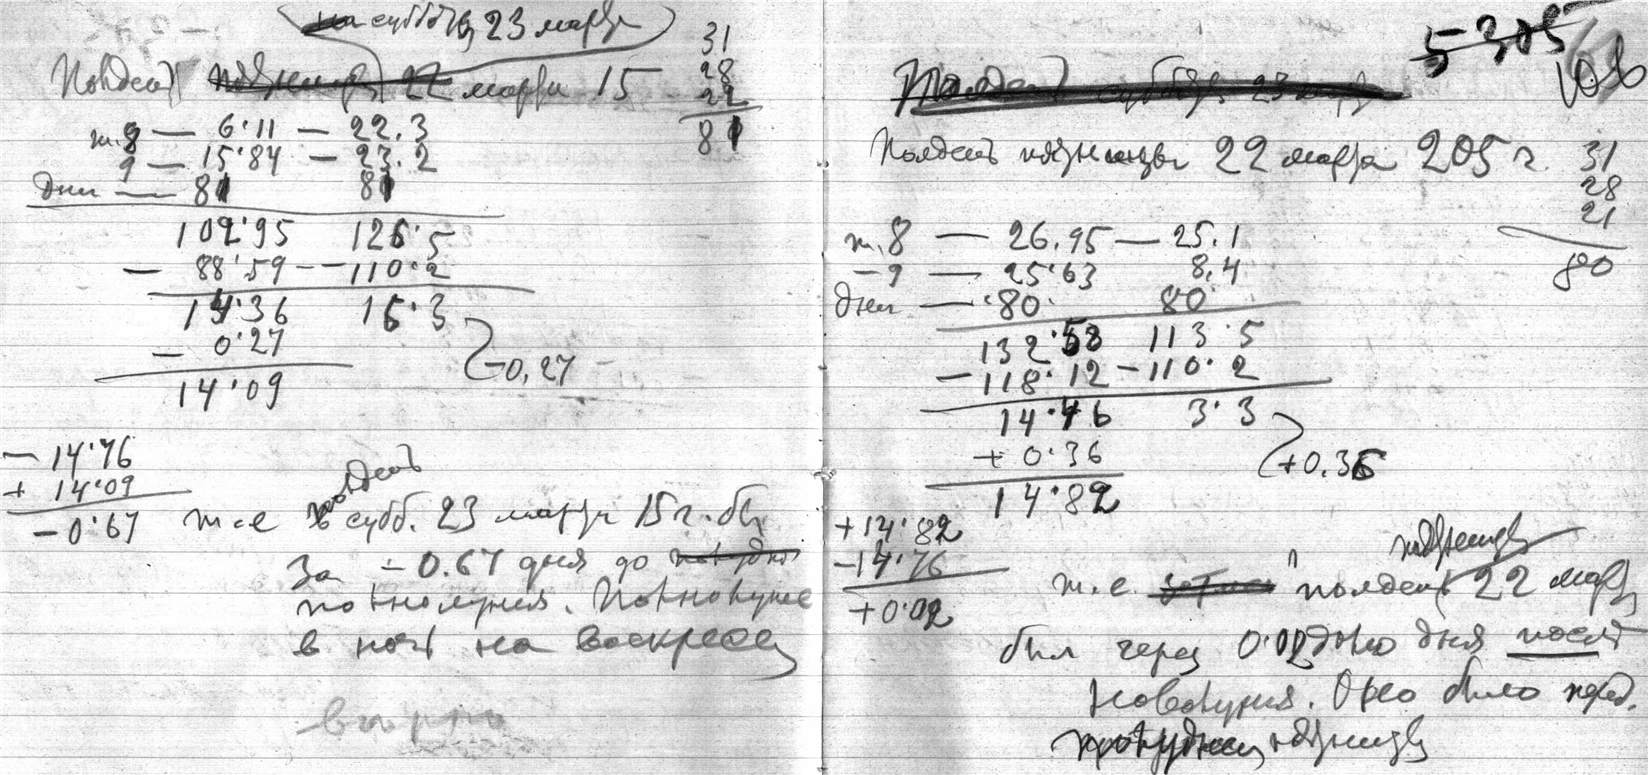 на субботу 23 марта
Полдень 22 марта 15
31
28
22
81
т. 8 — 6.11 — 22.3
9 — 15.84 — 23.2
дни — 81 81
109.95 126.5
— 88.59 — 110.2
14.36 16.3
— 0.27
— 0.27
14.09
— 14.76
+ 14.09
— 0.67
т.е. полдень
в субб. 23 марта 15 г. был
за — 0.67 дня до
полнолуния. Полнолуние
в ночь на воскресе
верно
5305
Полдень субботы 23 марта
Полдень пятницы 22 марта 205 г.
31
28
21
80
т. 8 — 26.95 — 25.1
— 9 — 25.63 8.4
дни — 80 80
132.58 113.5
— 118.12 — 110.2
14.46 3.3
+ 0.36
+0.36
14.82
+14.82
—14.76
+0.02
пятницы
т.е. полдень 22 марта
был через 0.02 дня после
Оно было перед.
пятницы